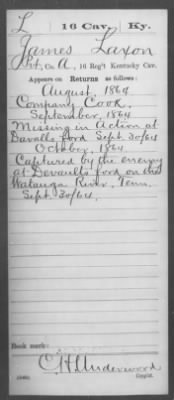 L 16 Cav. Ky.
James Laxon
Pvt., Co. A, 16 Reg't Kentucky Cav.
Appears on Returns as follows:
August, 1864
Company Cook.
September, 1864
Missing in Action at
Davalls Ford Sept. 30/64
October, 1864
Captured by the enemy
at Devaults ford on the
Watauga River, Tenn.
Sept. 30/64.
Book mark:
C H Underwood
Copyist.